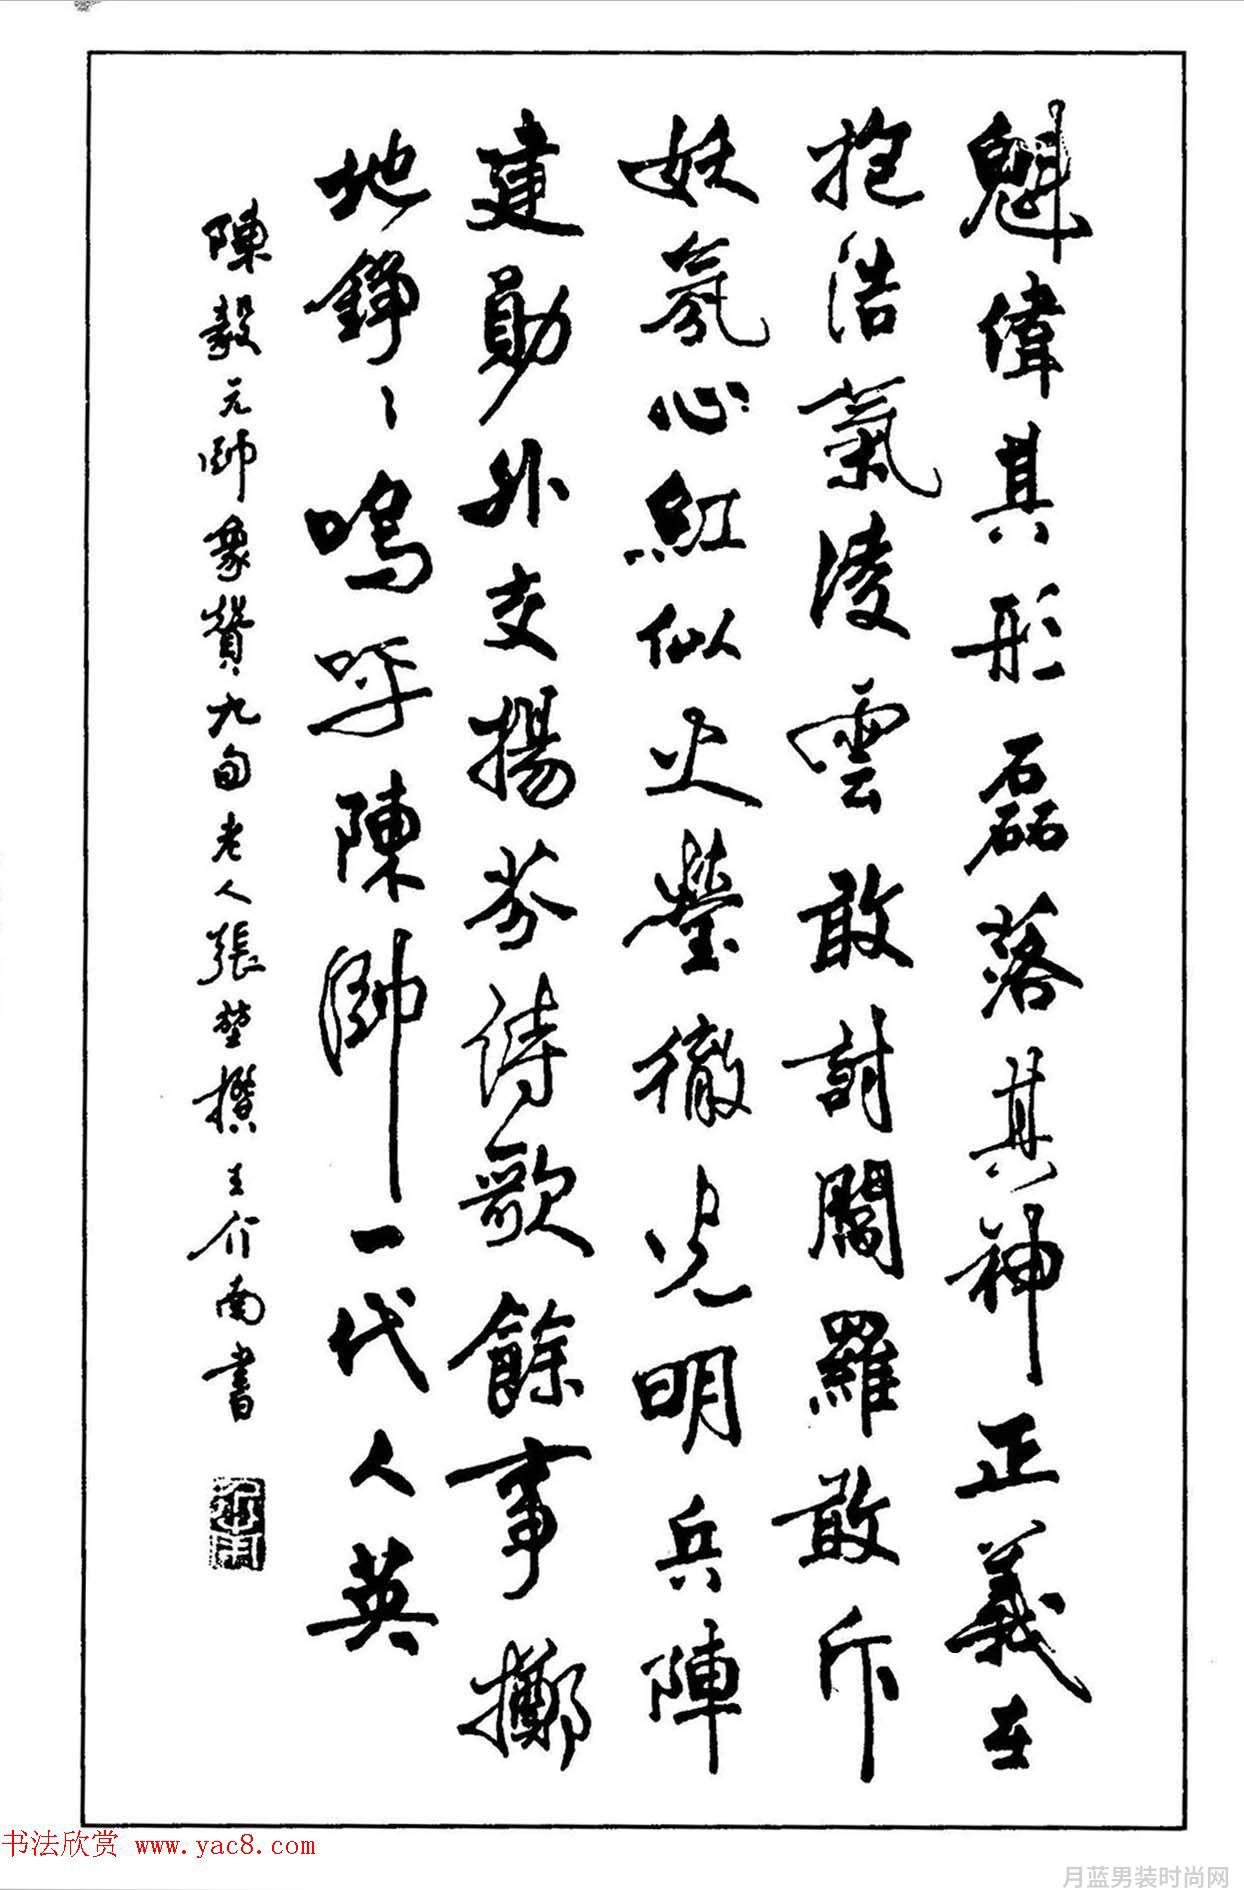 魁偉其形磊落其神正義在
抱浩氣凌雲敢討閻羅敢斥
妖氛心紅似火瑩徹光明兵陣
建勛外交揚芬詩歌餘事擲
地錚〻嗚呼陳帥一代人英
陳毅元帥象贊九旬老人張堃撰王介南書
书法欣赏 www.yac8.com
月蓝男装时尚网